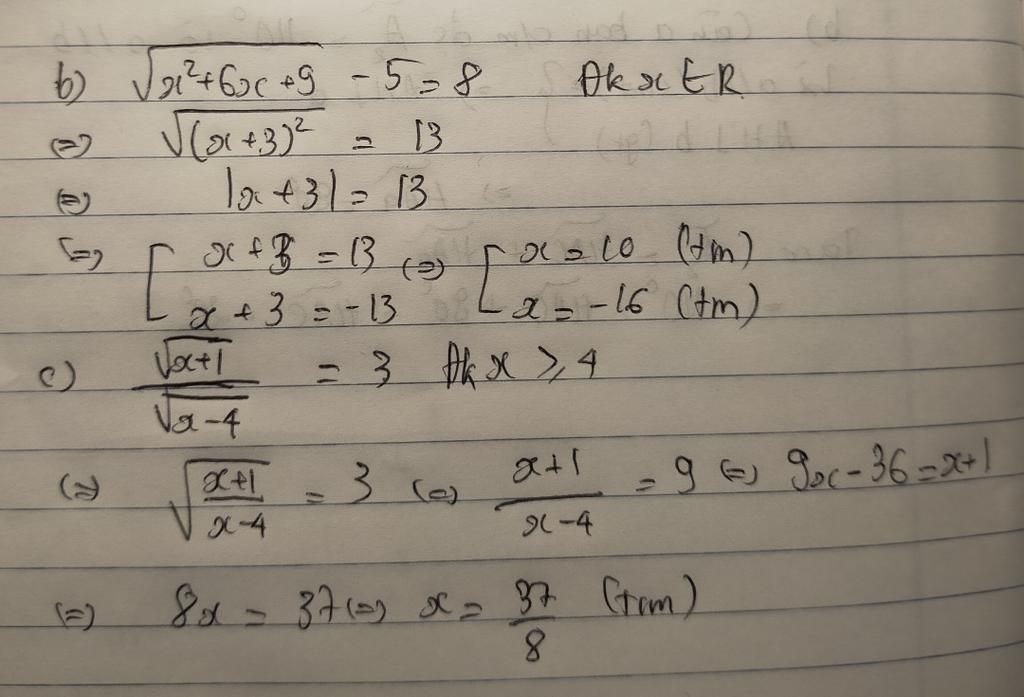 b) √(x²+6x+9) - 5 = 8 Đk x ∈ R
(=) √((x+3)²) = 13
(=) |x+3| = 13
(=) [ x+3 = 13 (=) [ x = 10 (tm)
x+3 = -13 x = -16 (tm)
c) √(x+1) / √(x-4) = 3 Đk x ≥ 4
(=) √((x+1)/(x-4)) = 3 (=) (x+1)/(x-4) = 9 (=) 9x - 36 = x+1
(=) 8x = 37 (=) x = 37/8 (tm)